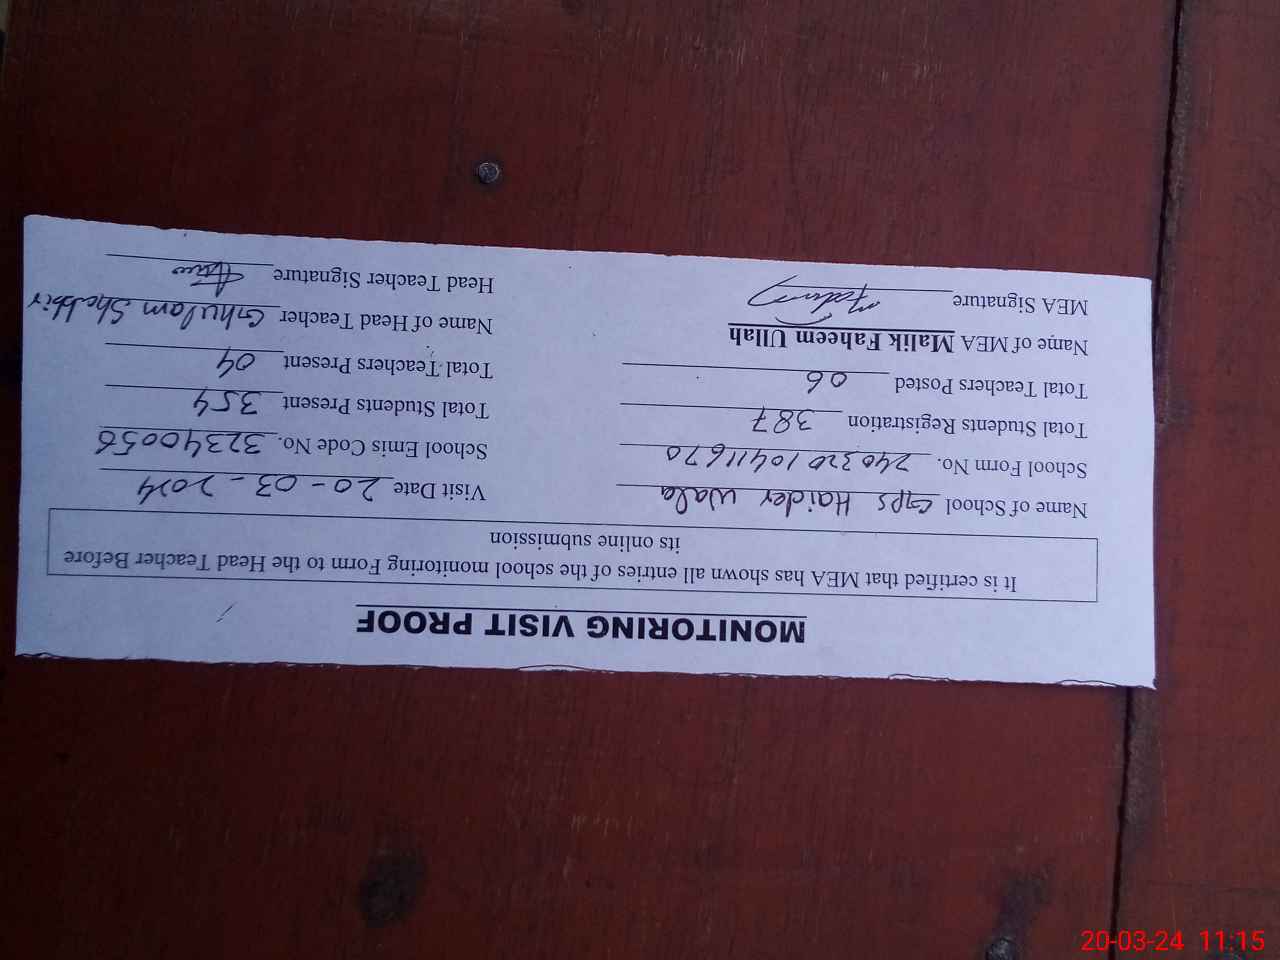 MONITORING VISIT PROOF
It is certified that MEA has shown all entries of the school monitoring Form to the Head Teacher Before
its online submission
Name of School GPS Haider Wala Visit Date 20-03-2024
School Form No. 24032010411670 School Emis Code No. 32340056
Total Students Registration 387 Total Students Present 354
Total Teachers Posted 06 Total Teachers Present 04
Name of MEA Malik Faheem Ullah Name of Head Teacher Ghulam Shabbir
MEA Signature Head Teacher Signature
20-03-24 11:15